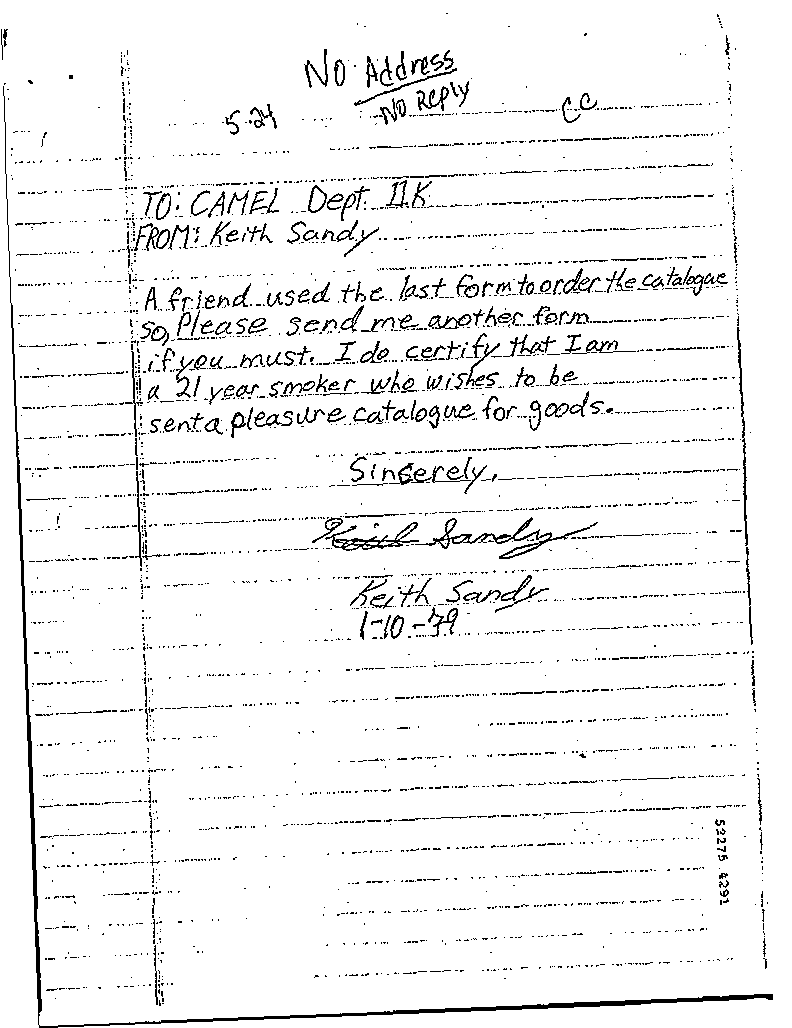 No Address
No Reply
5-24
CC
TO: CAMEL Dept. IIK
FROM: Keith Sandy
A friend used the last form to order the catalogue
so, Please send me another form
if you must. I do certify that I am
a 21 year smoker who wishes to be
sent a pleasure catalogue for goods.
Sincerely,
Keith Sandy
Keith Sandy
1-10-79
52275 4291